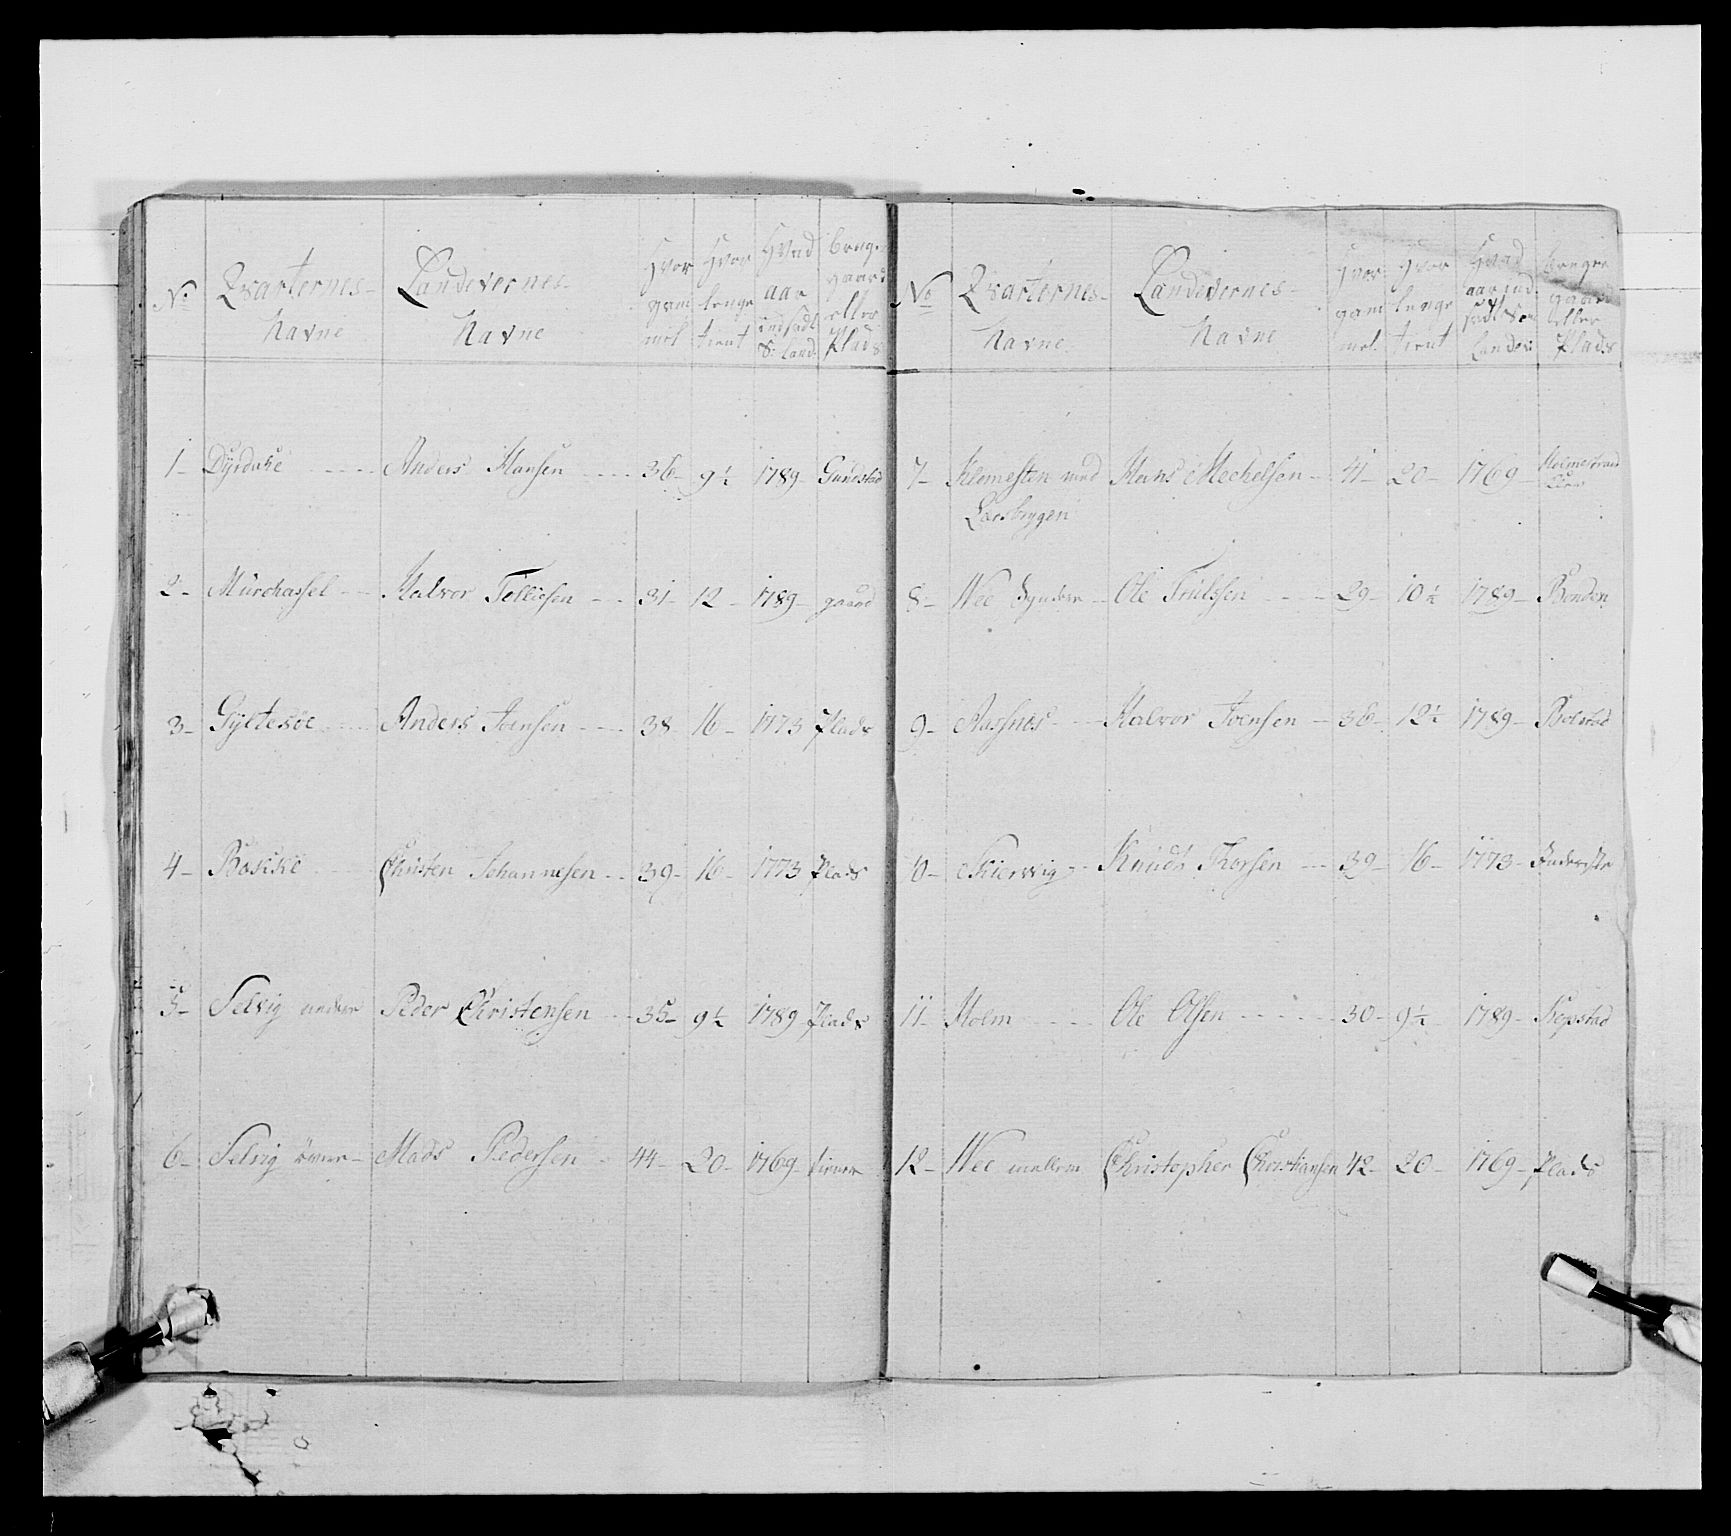 No Qvarternes Navne Landevernes Navne Hvor gam mel Hvor lenge tient Hvad aar indsadt S: Land. brug. gaard eller Plads
1 - Dyrdahl - Anders Hansen - 36 - 9½ 1789 - Gundstad
2 - Murchassel - Halvor Tollefsen - 31 - 12 - 1789 - gaard
3 - Gyltesøe - Anders Joensen - 38 16 - 1773 Plads
4 - Bakke Christen Johannesen - 39 - 16 - 1773 Plads
5 - Selvig nedere Peder Christensen - 35 - 9½ 1789 Plads
6 - Selvig øvere - Mads Pedersen - 44 - 20 - 1769 tiener
No Qvarternes Navne Landevernes Navne Hvor gam mel. Hvor lenge tient Hvad aar ind sadt som Landev: bruger gaard eller Plads
7 - Klemesten med Hans Mechelsen - 41 - 20 - 1769 - Holmestrand
Larsbrygen
8 - Wee Syndere - Ole Trulssen - 29 - 10½ 1789 - Bonden
9 - Aasnes - Halvor Joensen - 36 - 12½ 1789 - Bolstad
10 - Skiervig - Knudt Thorsen - 39 - 16 - 1773 -
11 - Holm - Ole Olsen - 30 - 9½ 1789 - Kopstad
12 - Wee mellem Christopher Christiansen 42 - 20 - 1769 - Plads